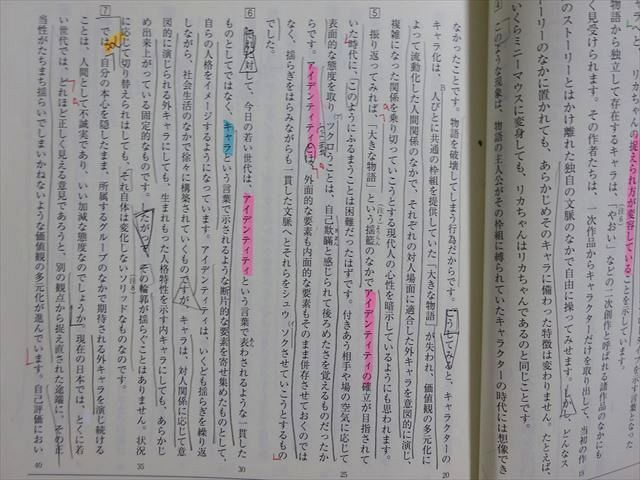 とちゃんの捉えられ方が変容していることを示しています。
物語から独立して存在するキャラは、「やおい」などの二次創作と呼ばれる諸作品のなかにも
く見受けられます。その作者たちは、一次作品からキャラクターだけを取り出して、当初の作
のストーリーとはかけ離れた独自の文脈のなかで自由に操ってみせます。しかし、どんなス
ーリーのなかに置かれても、あらかじめそのキャラに備わった特徴は変わりません。たとえば、
いくらミニーマウスに変身しても、リカちゃんはリカちゃんであるのと同じことです。
4 このような現象は、物語の主人公がその枠組に縛られていたキャラクターの時代には想像でき
なかったことです。物語を破壊してしまう行為だからです。こうしてみると、キャラクターの
キャラ化は、人びとに共通の枠組を提供していた「大きな物語」が失われ、価値観の多元化に
よって流動化した人間関係のなかで、それぞれの対人場面に適合した外キャラを意図的に演じ、
複雑になった関係を乗り切っていこうとする現代人の心性を暗示しているようにも思われます。
5 振り返ってみれば、「大きな物語」という揺籃のなかでアイデンティティの確立が目指されて
いた時代に、このようにふるまうことは困難だったはずです。付きあう相手や場の空気に応じて
表面的な態度を取りツクロうことは、自己欺瞞と感じられて後ろめたさを覚えるものだったか
らです。アイデンティティとは、外面的な要素も内面的な要素もそのまま併存させておくのでは
なく、揺らぎをはらみながらも一貫した文脈へとそれらをシュウソクさせていこうとするもの
でした。
6 これに対して、今日の若い世代は、アイデンティティという言葉で表わされるような一貫した
ものとしてではなく、キャラという言葉で示されるような断片的な要素を寄せ集めたものとして、
自らの人格をイメージするようになっています。アイデンティティは、いくども揺らぎを繰り返
しながら、社会生活のなかで徐々に構築されていくものですが、キャラは、対人関係に応じて意
図的に演じられる外キャラにしても、生まれもった人格特性を示す内キャラにしても、あらかじ
め出来上がっている固定的なものです。したがって、その輪郭が揺らぐことはありません。状況
に応じて切り替えられはしても、それ自体は変化しないソリッドなものなのです。
7 では、自分の本心を隠したまま、所属するグループのなかで期待される外キャラを演じ続ける
ことは、人間として不誠実であり、いい加減な態度なのでしょうか。現在の日本では、とくに若
い世代では、どれほど正しく見える意見であろうと、別の観点から捉え直された途端に、その正
当性がたちまち揺らいでしまいかねないような価値観の多元化が進んでいます。自己評価におい
20
25
30
35
40